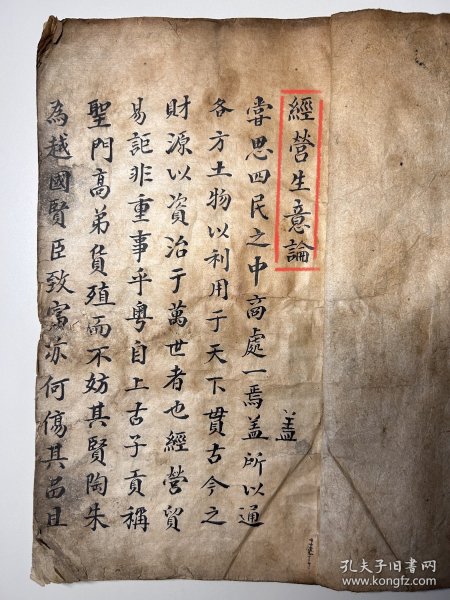 經營生意論
嘗思四民之中商處一焉盖所以通
各方土物以利用于天下貫古今之
財源以資治于萬世者也經營貿
易詎非重事乎粤自上古子貢稱
聖門高弟貨殖而不妨其賢陶朱
為越國賢臣致富亦何傷其品且
盖
孔夫子旧书网
www.kongfz.com